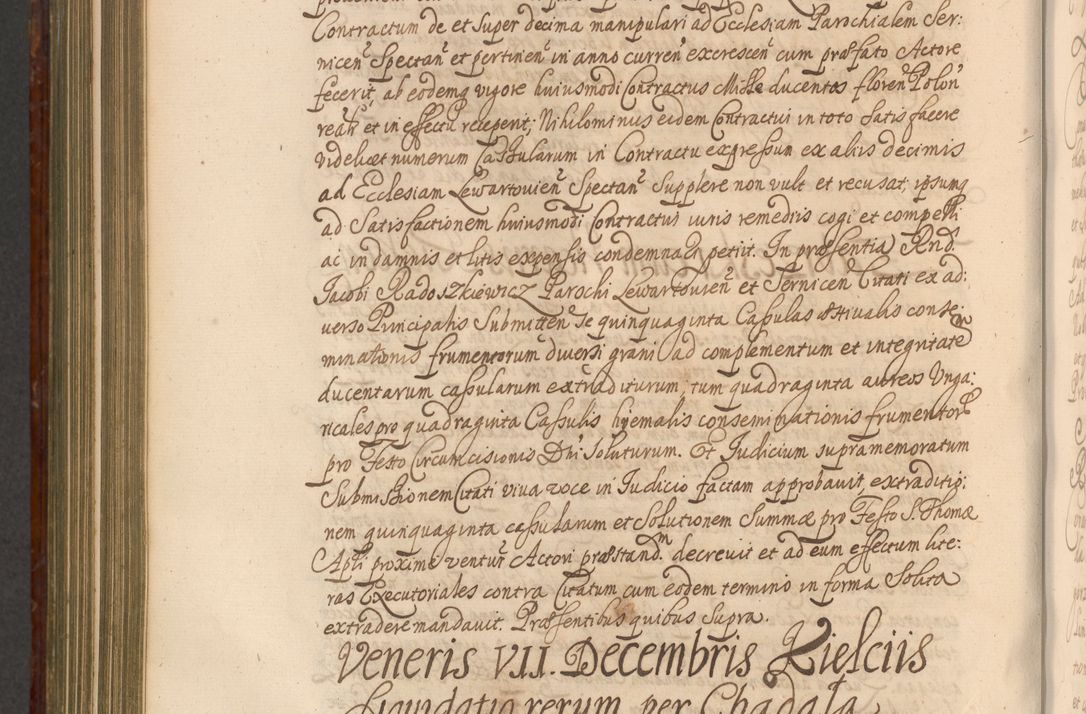 Contractum de et super decima manipulari ad Ecclesiam Parochialem Ser:
nicen̄ Spectan̄ et pertinen̄ in anno curren̄ excrescen̄ cum præfato Actore
fecerit, ab eodemq vigore huiusmodi Contractus Mille ducentos floren̄ Polon̄
realr̄ et in effectu receperit; Nihilominus eidem Contractui in toto satis facere
videlicet numerum Cassularum in Contractu expressum ex aliis decimis
ad Ecclesiam Lewartovien̄ Spectan̄ Supplere non vult et recusat; ipsumq
ad Satisfactionem huiusmodi Contractus iuris remediis cogi et compelli
ac in damnis et litis expensis condemnari petiit. In præsentia Rnd.
Jacobi Radoszkiewicz Parochi Lewartovien̄ et Sernicen̄ Citati ex ad:
verso Principalis Submitten̄ se quinquaginta Cassulas æstivalis conse:
minationis frumentorum diversi grani ad complementum et integritatem
ducentarum cassularum extraditurum, tum quadraginta aureos Unga:
ricales pro quadraginta Cassulis hyemalis conseminationis frumentorū
pro Festo Circumcisionis Dn̄i Soluturum. Et Judicium supramemoratum
Submissionem Citati viva voce in Judicio factam approbavit, extraditio:
nem quinquaginta cassularum et Solutionem Summæ pro Festo S. Thomæ
Apli proxime ventur̄ Actori præstand.m decrevit et ad eum effectum lite:
ras Executoriales contra Citatum cum eodem termino in forma Solita
extradere mandavit. Præsentibus quibus Supra.
Veneris VII. Decembris Kielciis
Liquidatio rerum per Chadala